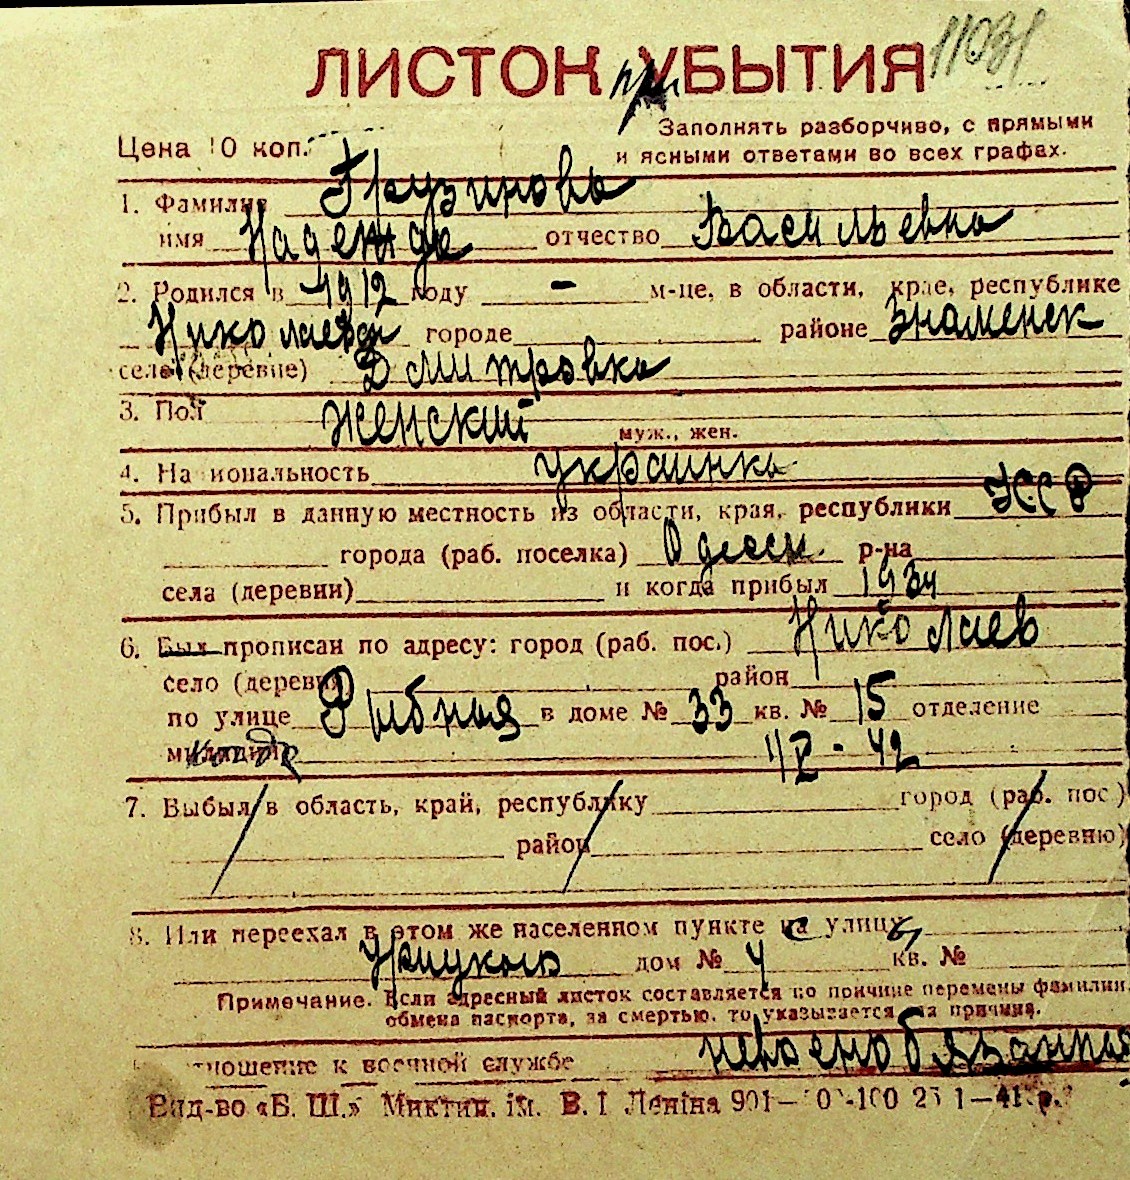 11031
ЛИСТОК при УБЫТИЯ
Заполнять разборчиво, с прямыми
Цена 10 коп. и ясными ответами во всех графах.
1. Фамилия Грузинова
имя Надежда отчество Васильевна
2. Родился в 1912 году – м-це, в области, крае, республике
Николаевск городе районе Знаменск
село (деревне) Дмитровка
3. Пол женский муж., жен.
4. На иональность украинка
5. Прибыл в данную местность из области, края, республики УССР
города (раб. поселка) Одесск. р-на
села (деревни) и когда прибыл 1934
6. Был прописан по адресу: город (раб. пос.) Николаев
село (деревня) район
по улице Рыбная в доме № 33 кв. № 15 отделение
милиции 4/II - 42
7. Выбыл в область, край, республику город (раб. пос.)
район село (деревню)
8. Или переехал в этом же населенном пункте с улицу
Урицкого дом № 4 кв. №
Примечание. Если адресный листок составляется по причине перемены фамилии,
обмена паспорта, за смертью, то указывается эта причина.
тношение к военной службе невоенобязанная
Вид-во «Б. Ш.» Миктип. ім. В. І Леніна 901—